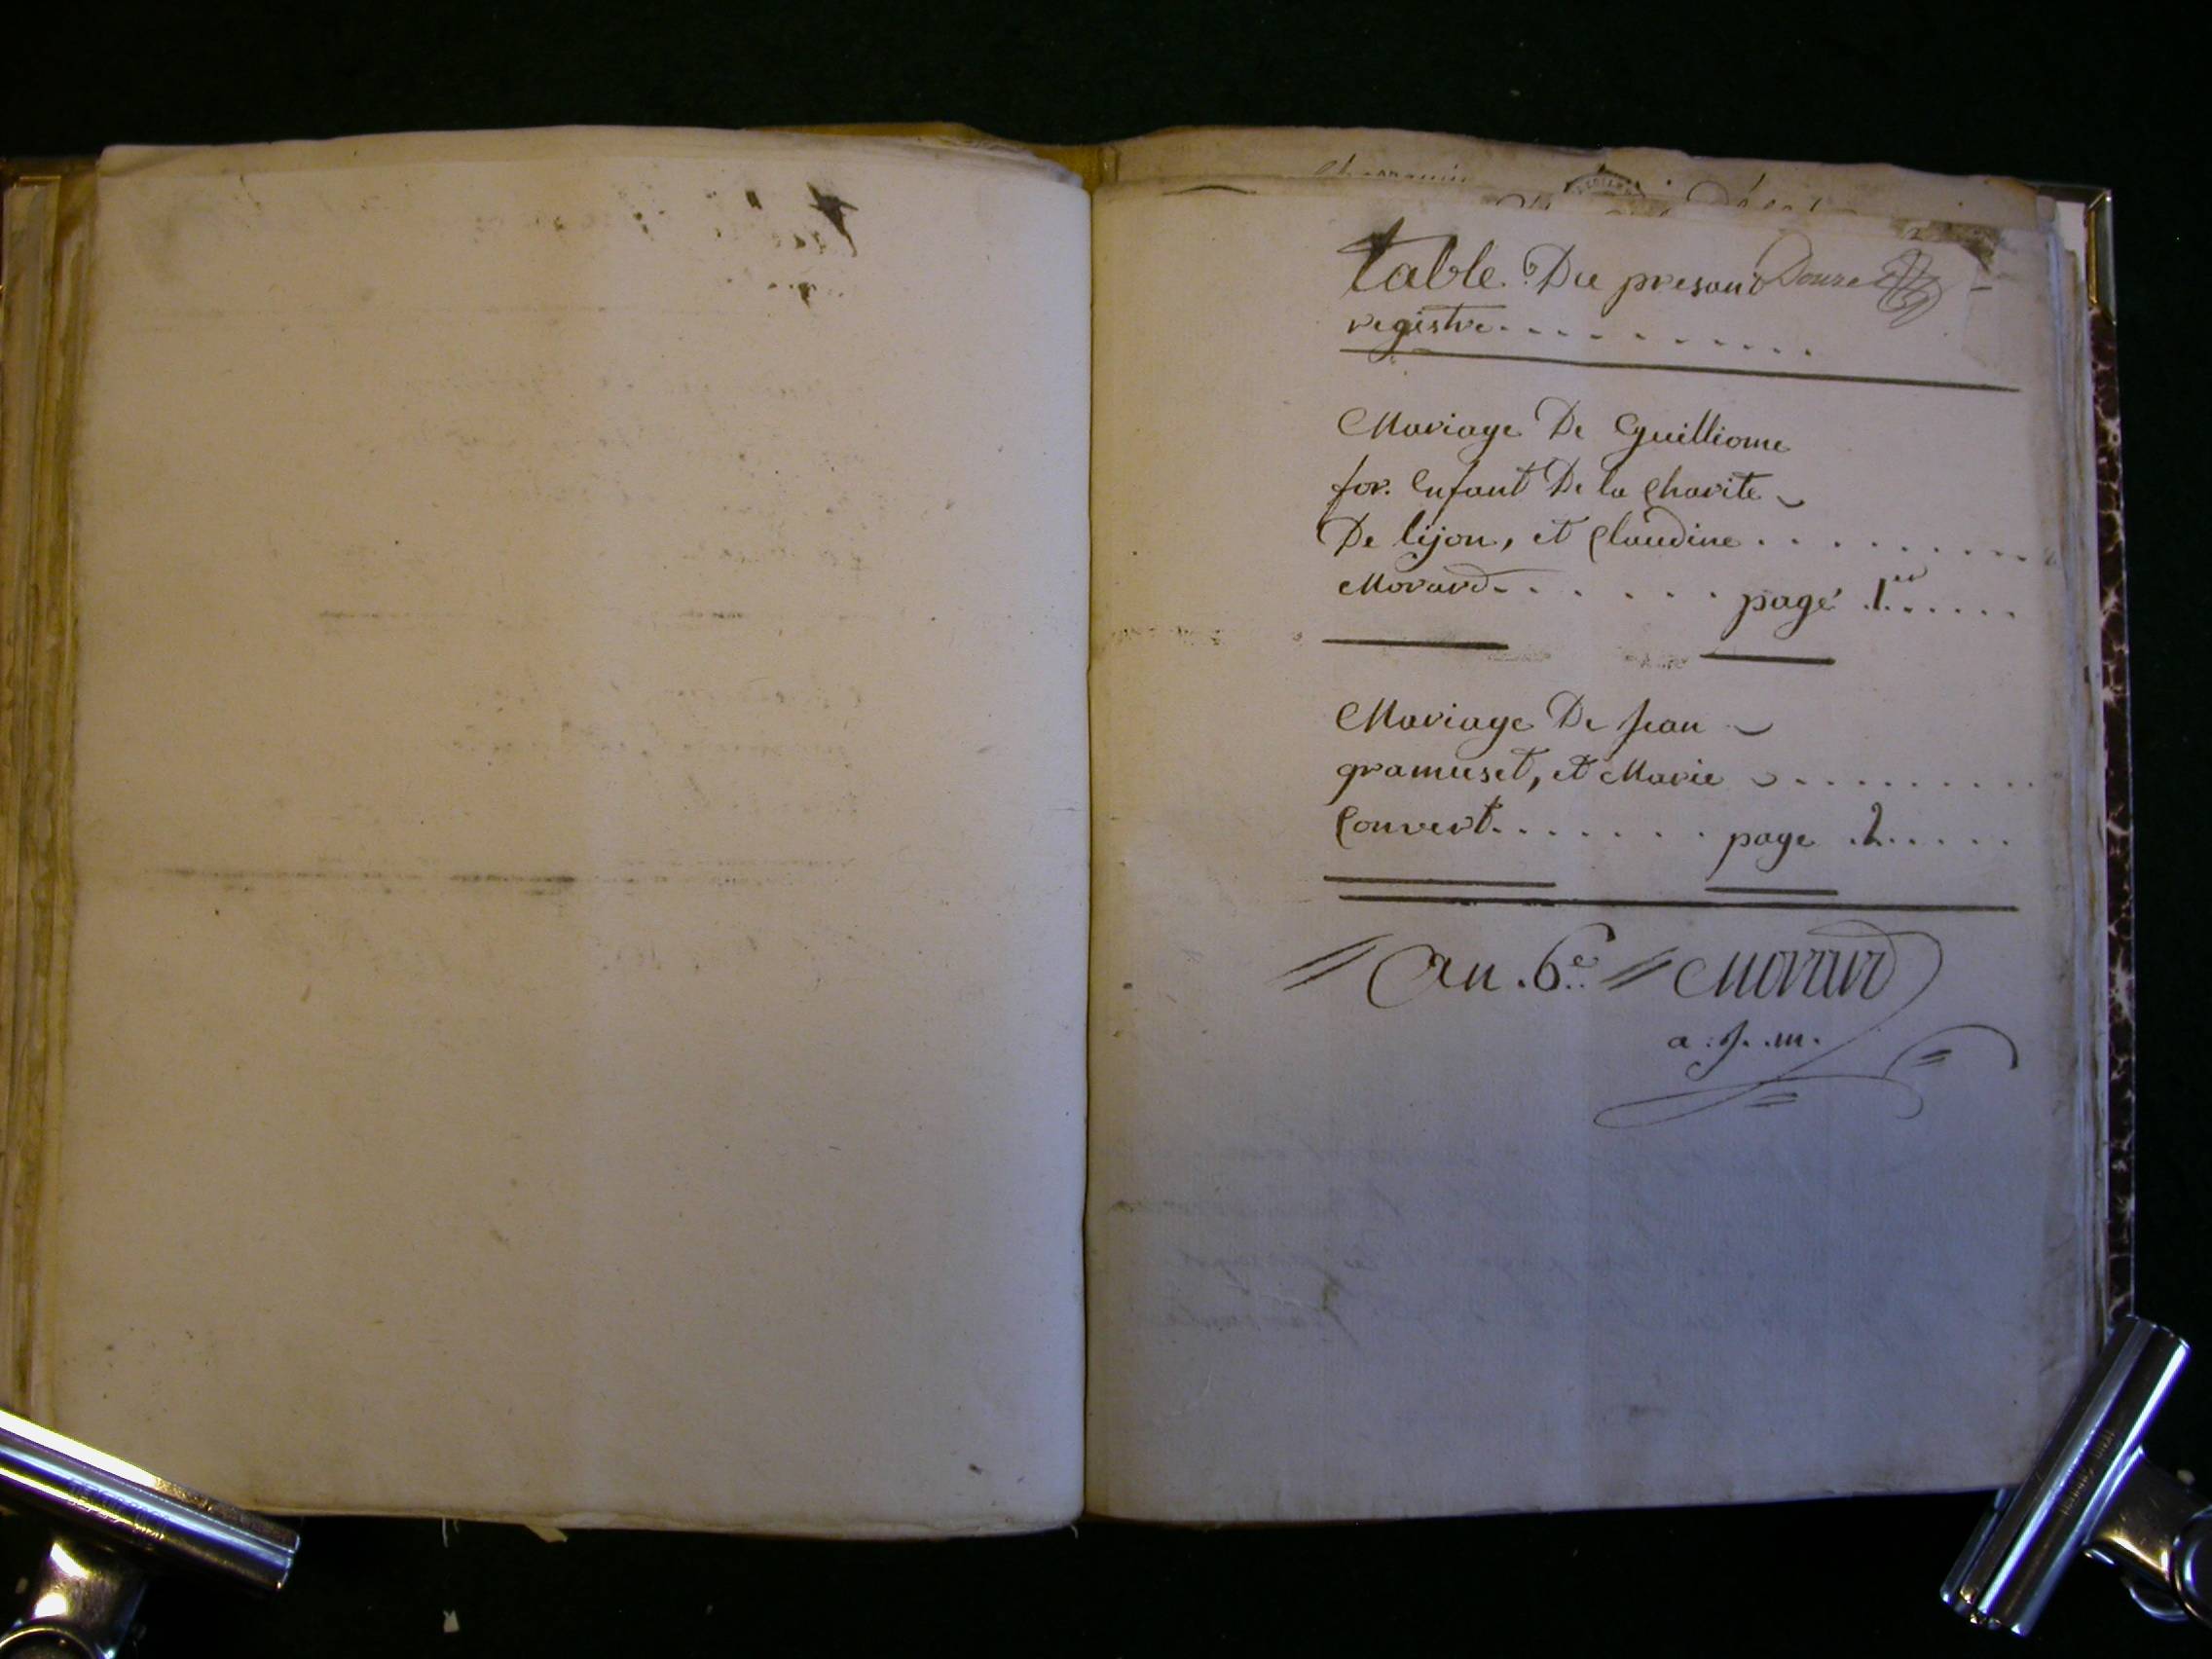 table Du presant Douze
registre . . . . . . . . . .
Mariage De Guilliome
for. Enfant De la Charite
De lijon, et Claudine . . . . . . . . .
Morard . . . . . . page 1er . . . . .
Mariage De Jean
gramuset, et Marie . . . . . . . . .
Convert . . . . . . . page .2. . . . .
// An .6e // Morard
a . j . m .